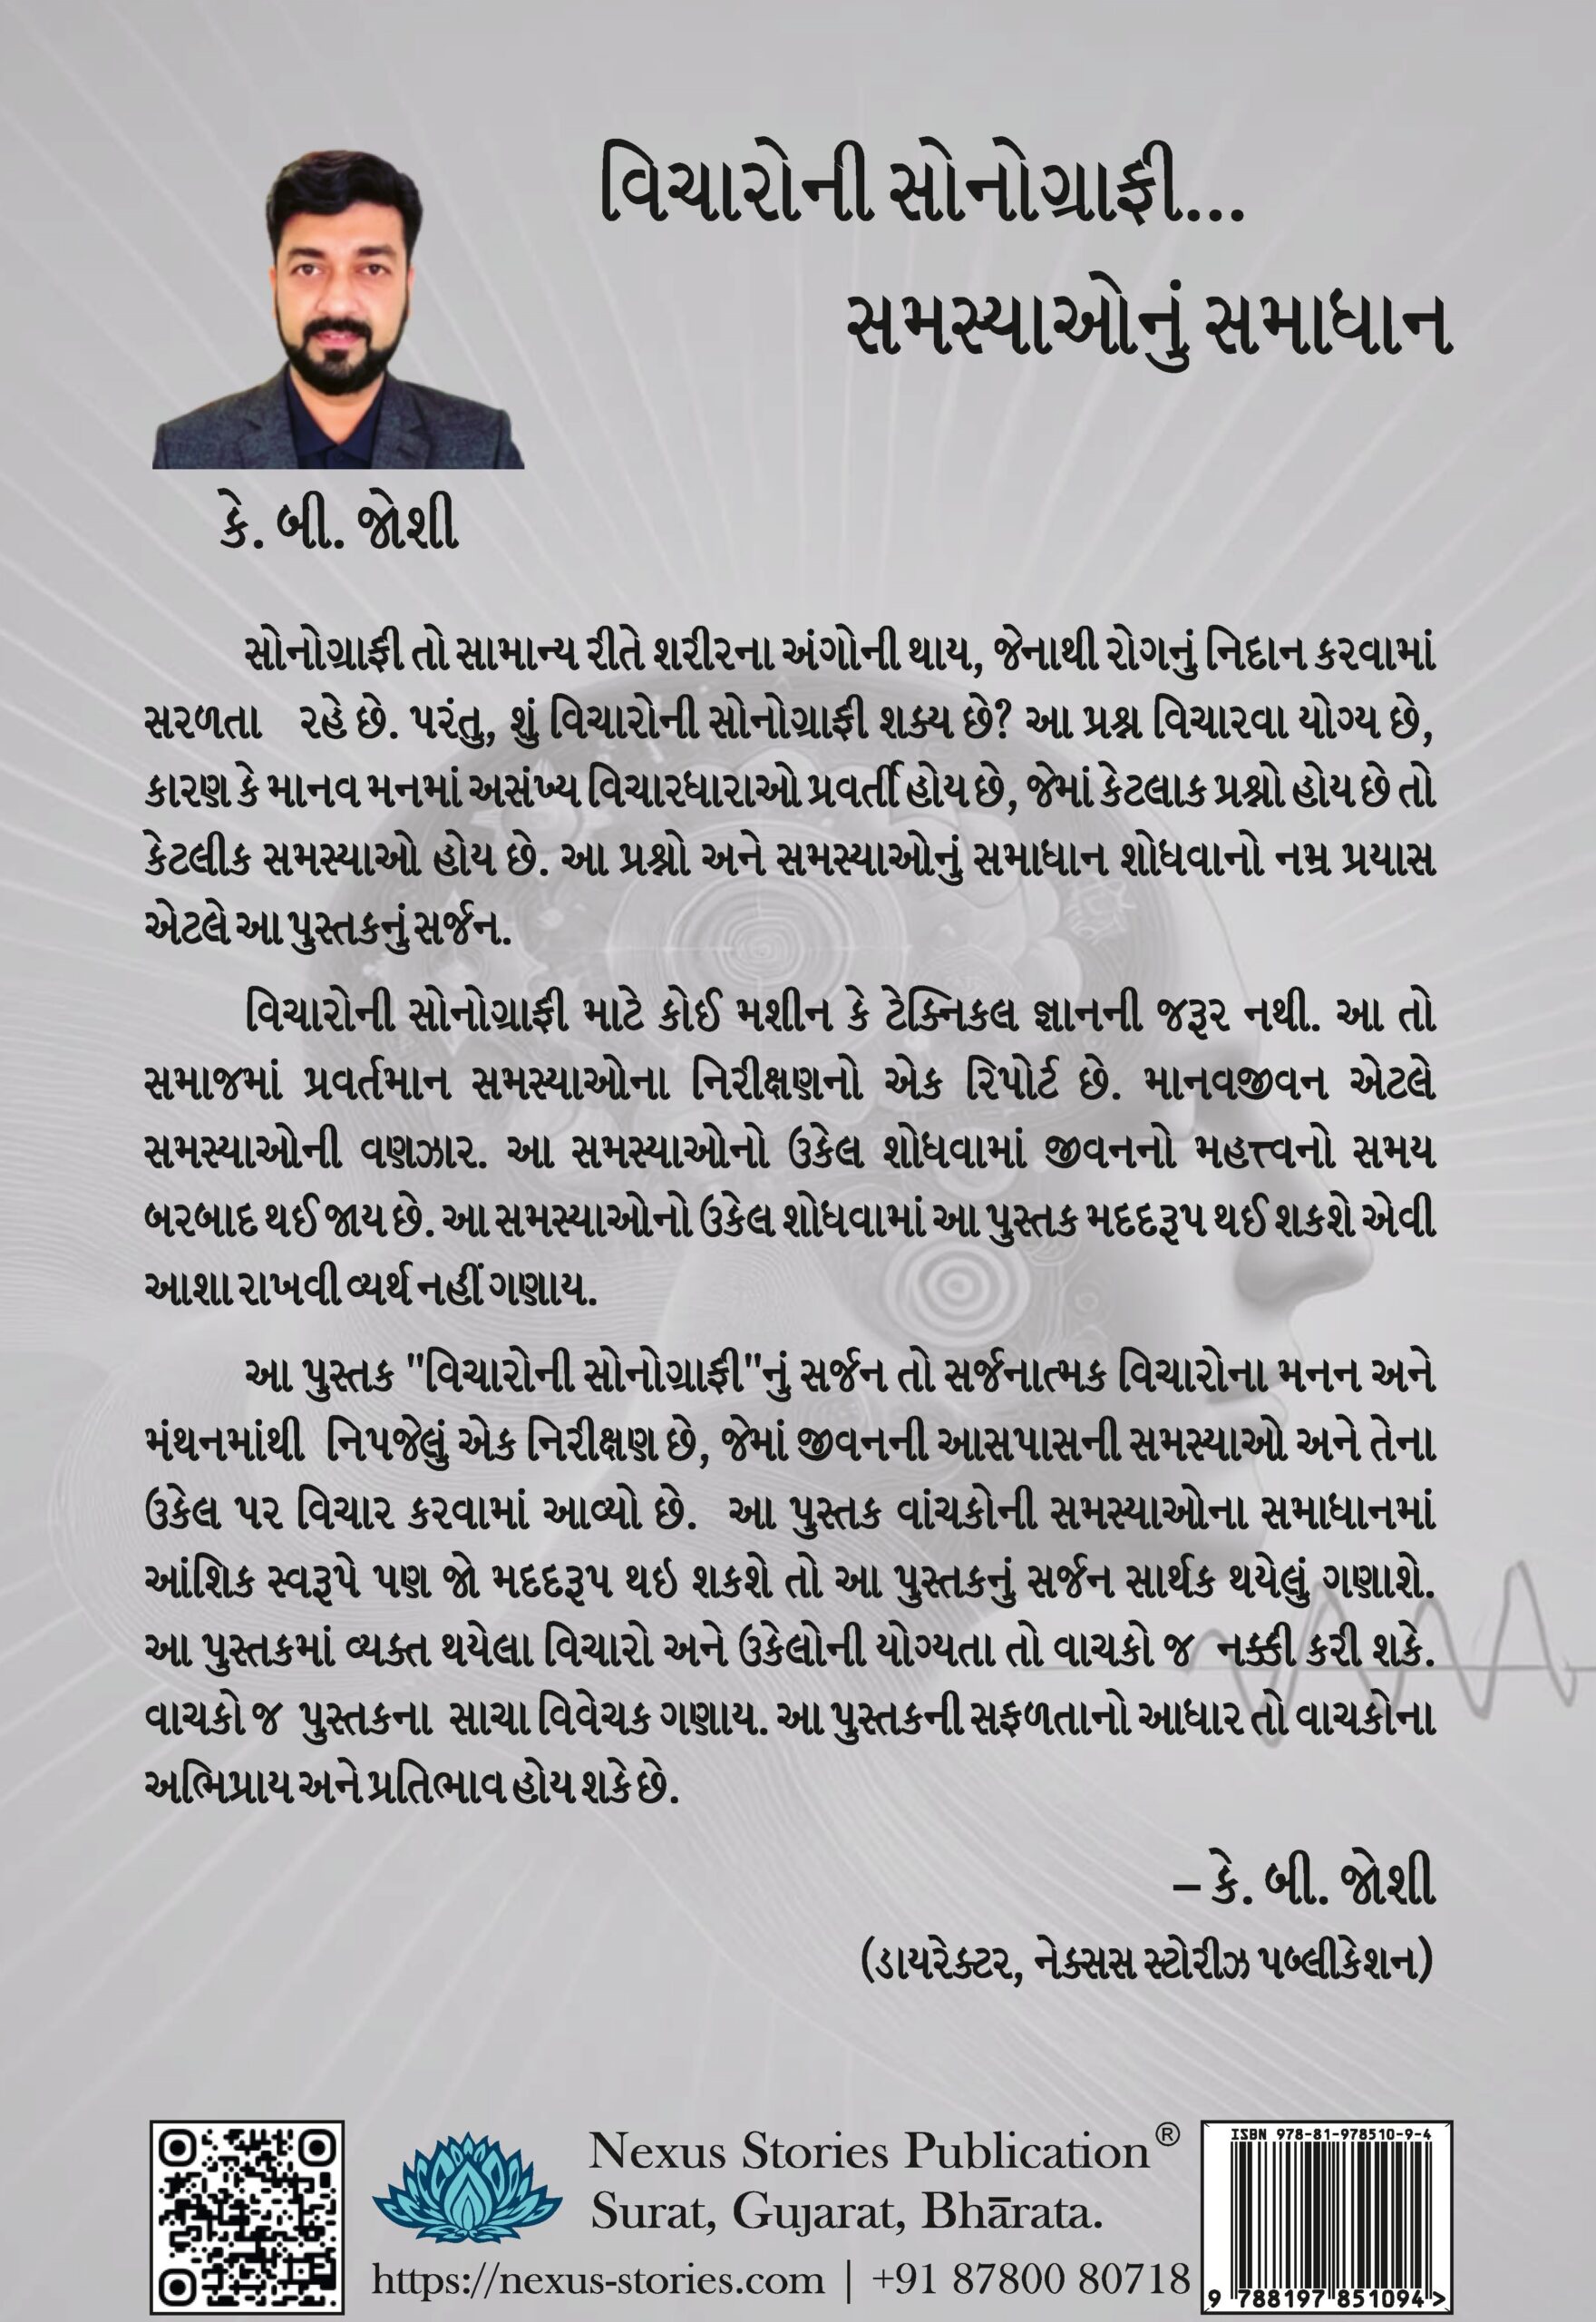 વિચારોની સોનોગ્રાફી...
સમસ્યાઓનું સમાધાન
કે. બી. જોશી
સોનોગ્રાફી તો સામાન્ય રીતે શરીરના અંગોની થાય, જેનાથી રોગનું નિદાન કરવામાં
સરળતા રહે છે. પરંતુ, શું વિચારોની સોનોગ્રાફી શક્ય છે? આ પ્રશ્ન વિચારવા યોગ્ય છે,
કારણ કે માનવ મનમાં અસંખ્ય વિચારધારાઓ પ્રવર્તી હોય છે, જેમાં કેટલાક પ્રશ્નો હોય છે તો
કેટલીક સમસ્યાઓ હોય છે. આ પ્રશ્નો અને સમસ્યાઓનું સમાધાન શોધવાનો નમ્ર પ્રયાસ
એટલે આ પુસ્તકનું સર્જન.
વિચારોની સોનોગ્રાફી માટે કોઈ મશીન કે ટેક્નિકલ જ્ઞાનની જરૂર નથી. આ તો
સમાજમાં પ્રવર્તમાન સમસ્યાઓના નિરીક્ષણનો એક રિપોર્ટ છે. માનવજીવન એટલે
સમસ્યાઓની વણઝાર. આ સમસ્યાઓનો ઉકેલ શોધવામાં જીવનનો મહત્ત્વનો સમય
બરબાદ થઈ જાય છે. આ સમસ્યાઓનો ઉકેલ શોધવામાં આ પુસ્તક મદદરૂપ થઈ શકશે એવી
આશા રાખવી વ્યર્થ નહીં ગણાય.
આ પુસ્તક "વિચારોની સોનોગ્રાફી"નું સર્જન તો સર્જનાત્મક વિચારોના મનન અને
મંથનમાંથી નિપજેલું એક નિરીક્ષણ છે, જેમાં જીવનની આસપાસની સમસ્યાઓ અને તેના
ઉકેલ પર વિચાર કરવામાં આવ્યો છે. આ પુસ્તક વાંચકોની સમસ્યાઓના સમાધાનમાં
આંશિક સ્વરૂપે પણ જો મદદરૂપ થઇ શકશે તો આ પુસ્તકનું સર્જન સાર્થક થયેલું ગણાશે.
આ પુસ્તકમાં વ્યક્ત થયેલા વિચારો અને ઉકેલોની યોગ્યતા તો વાચકો જ નક્કી કરી શકે.
વાચકો જ પુસ્તકના સાચા વિવેચક ગણાય. આ પુસ્તકની સફળતાનો આધાર તો વાચકોના
અભિપ્રાય અને પ્રતિભાવ હોય શકે છે.
– કે. બી. જોશી
(ડાયરેક્ટર, નેક્સસ સ્ટોરીઝ પબ્લીકેશન)
Nexus Stories Publication®
Surat, Gujarat, Bhārata.
https://nexus-stories.com | +91 87800 80718
ISBN 978-81-978510-9-4
9 788197 851094 >